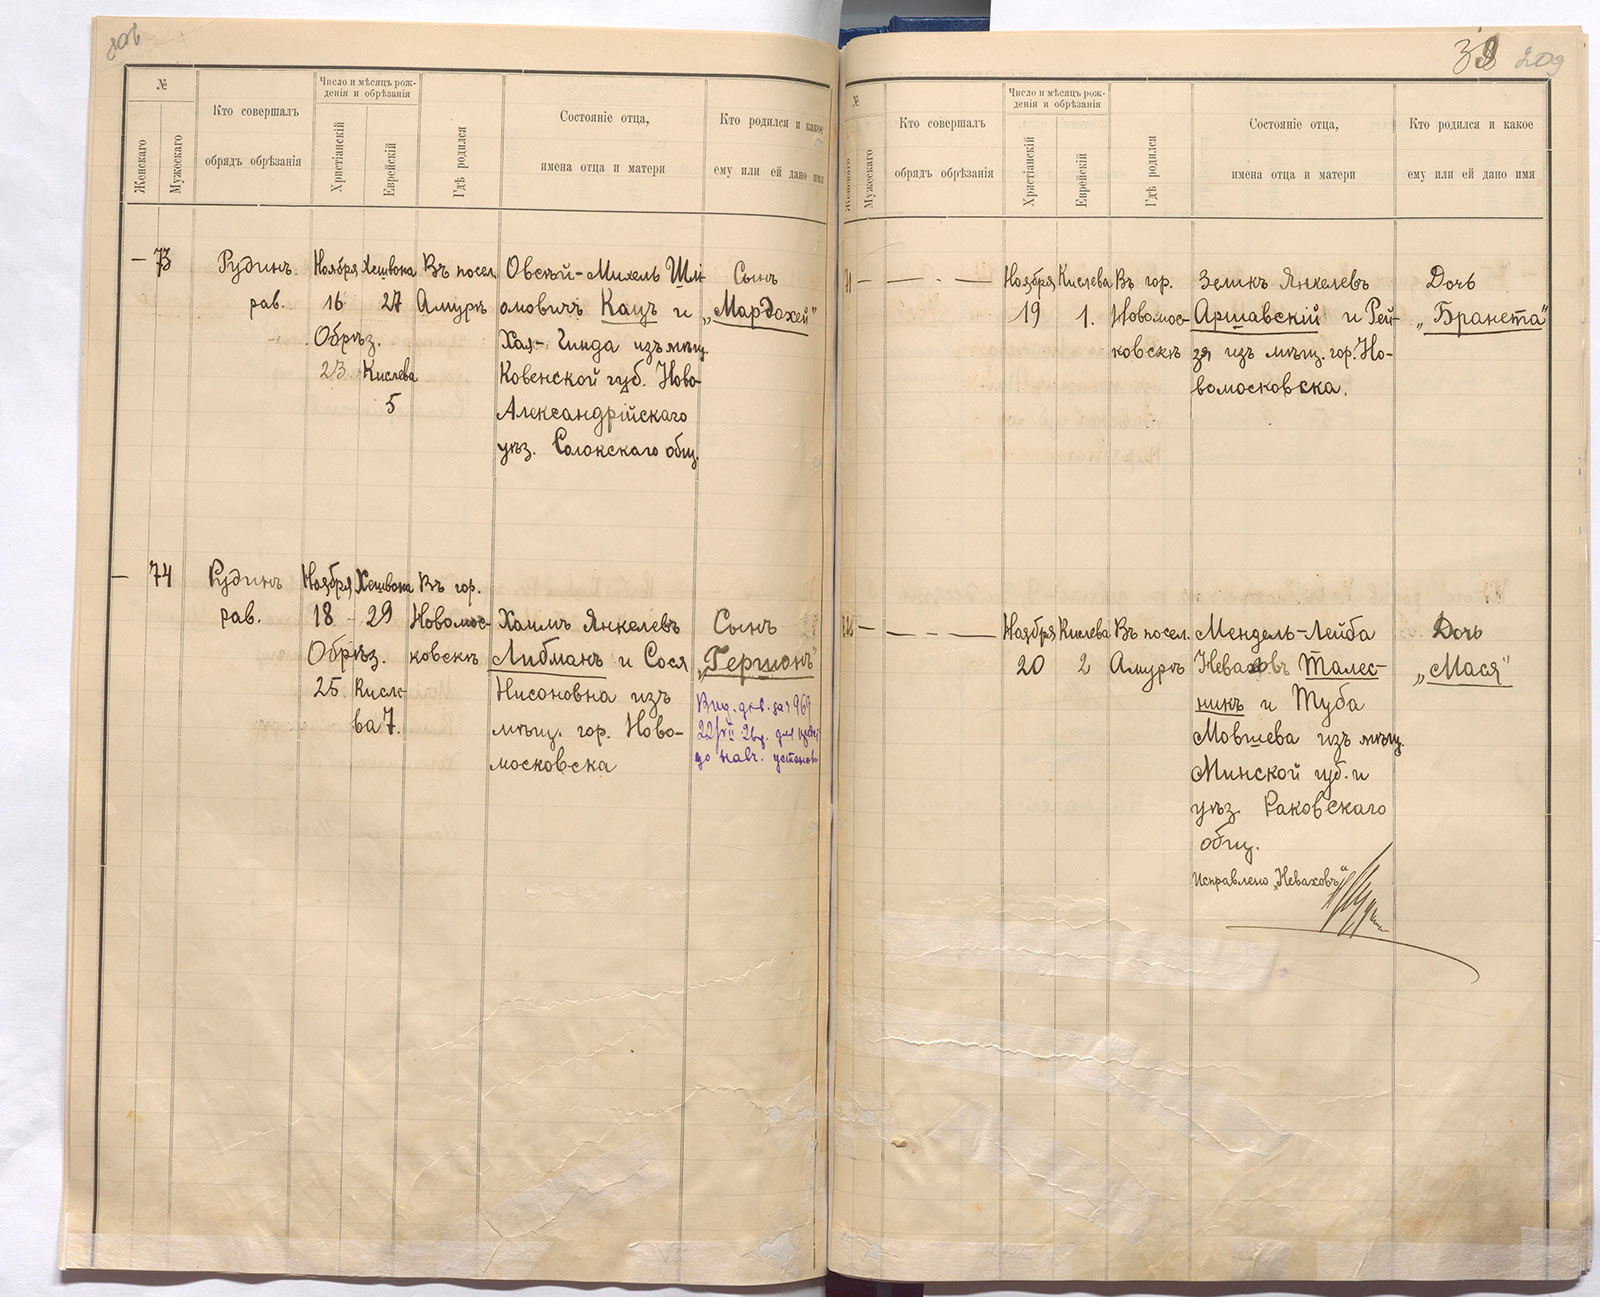 208
№
Женскаго
Мужескаго
Кто совершалъ
обрядъ обрѣзанія
Число и мѣсяцъ рож-
денія и обрѣзанія
Христіанскій
Еврейскій
Гдѣ родился
Состояніе отца,
имена отца и матери
Кто родился и какое
ему или ей дано имя
— 73
Рудинъ
рав.
Ноября
16
Обрѣз.
23
Хешвона
27
Кислева
5
Въ посел.
Амурѣ
Овсѣй-Михель Шлі-
омовичъ Кацъ и
Хая-Гинда изъ мѣщ.
Ковенской губ. Ново-
Александрійскаго
уѣз. Солокскаго общ.
Сынъ
„Мардохей"
— 74
Рудинъ
рав.
Ноября
18
Обрѣз.
25
Хешвона
29
Кисле-
ва 7.
Въ гор.
Новомос-
ковскѣ
Хаимъ Янкелевъ
Либманъ и Сося
Нисоновна изъ
мѣщ. гор. Ново-
московска
Сынъ
„Гершонъ"
Вид. за № 969
22/VII 26р. для
до навч. установ
39 209
№
Женскаго
Мужескаго
Кто совершалъ
обрядъ обрѣзанія
Число и мѣсяцъ рож-
денія и обрѣзанія
Христіанскій
Еврейскій
Гдѣ родился
Состояніе отца,
имена отца и матери
Кто родился и какое
ему или ей дано имя
— — - —
Ноября
19
Кислева
1.
Въ гор.
Новомос-
ковскѣ
Зеликъ Янкелевъ
Аршавскій и Рей-
зя изъ мѣщ. гор. Но-
вомосковска.
Дочь
„Бранета"
— — - —
Ноября
20
Кислева
2
Въ посел.
Амурѣ
Мендель-Лейба
Неваховъ Талес-
никъ и Туба
Мовшева изъ мѣщ.
Минской губ. и
уѣз. Раковскаго
общ.
Исправлено „Неваховъ"
Дочь
„Мася"